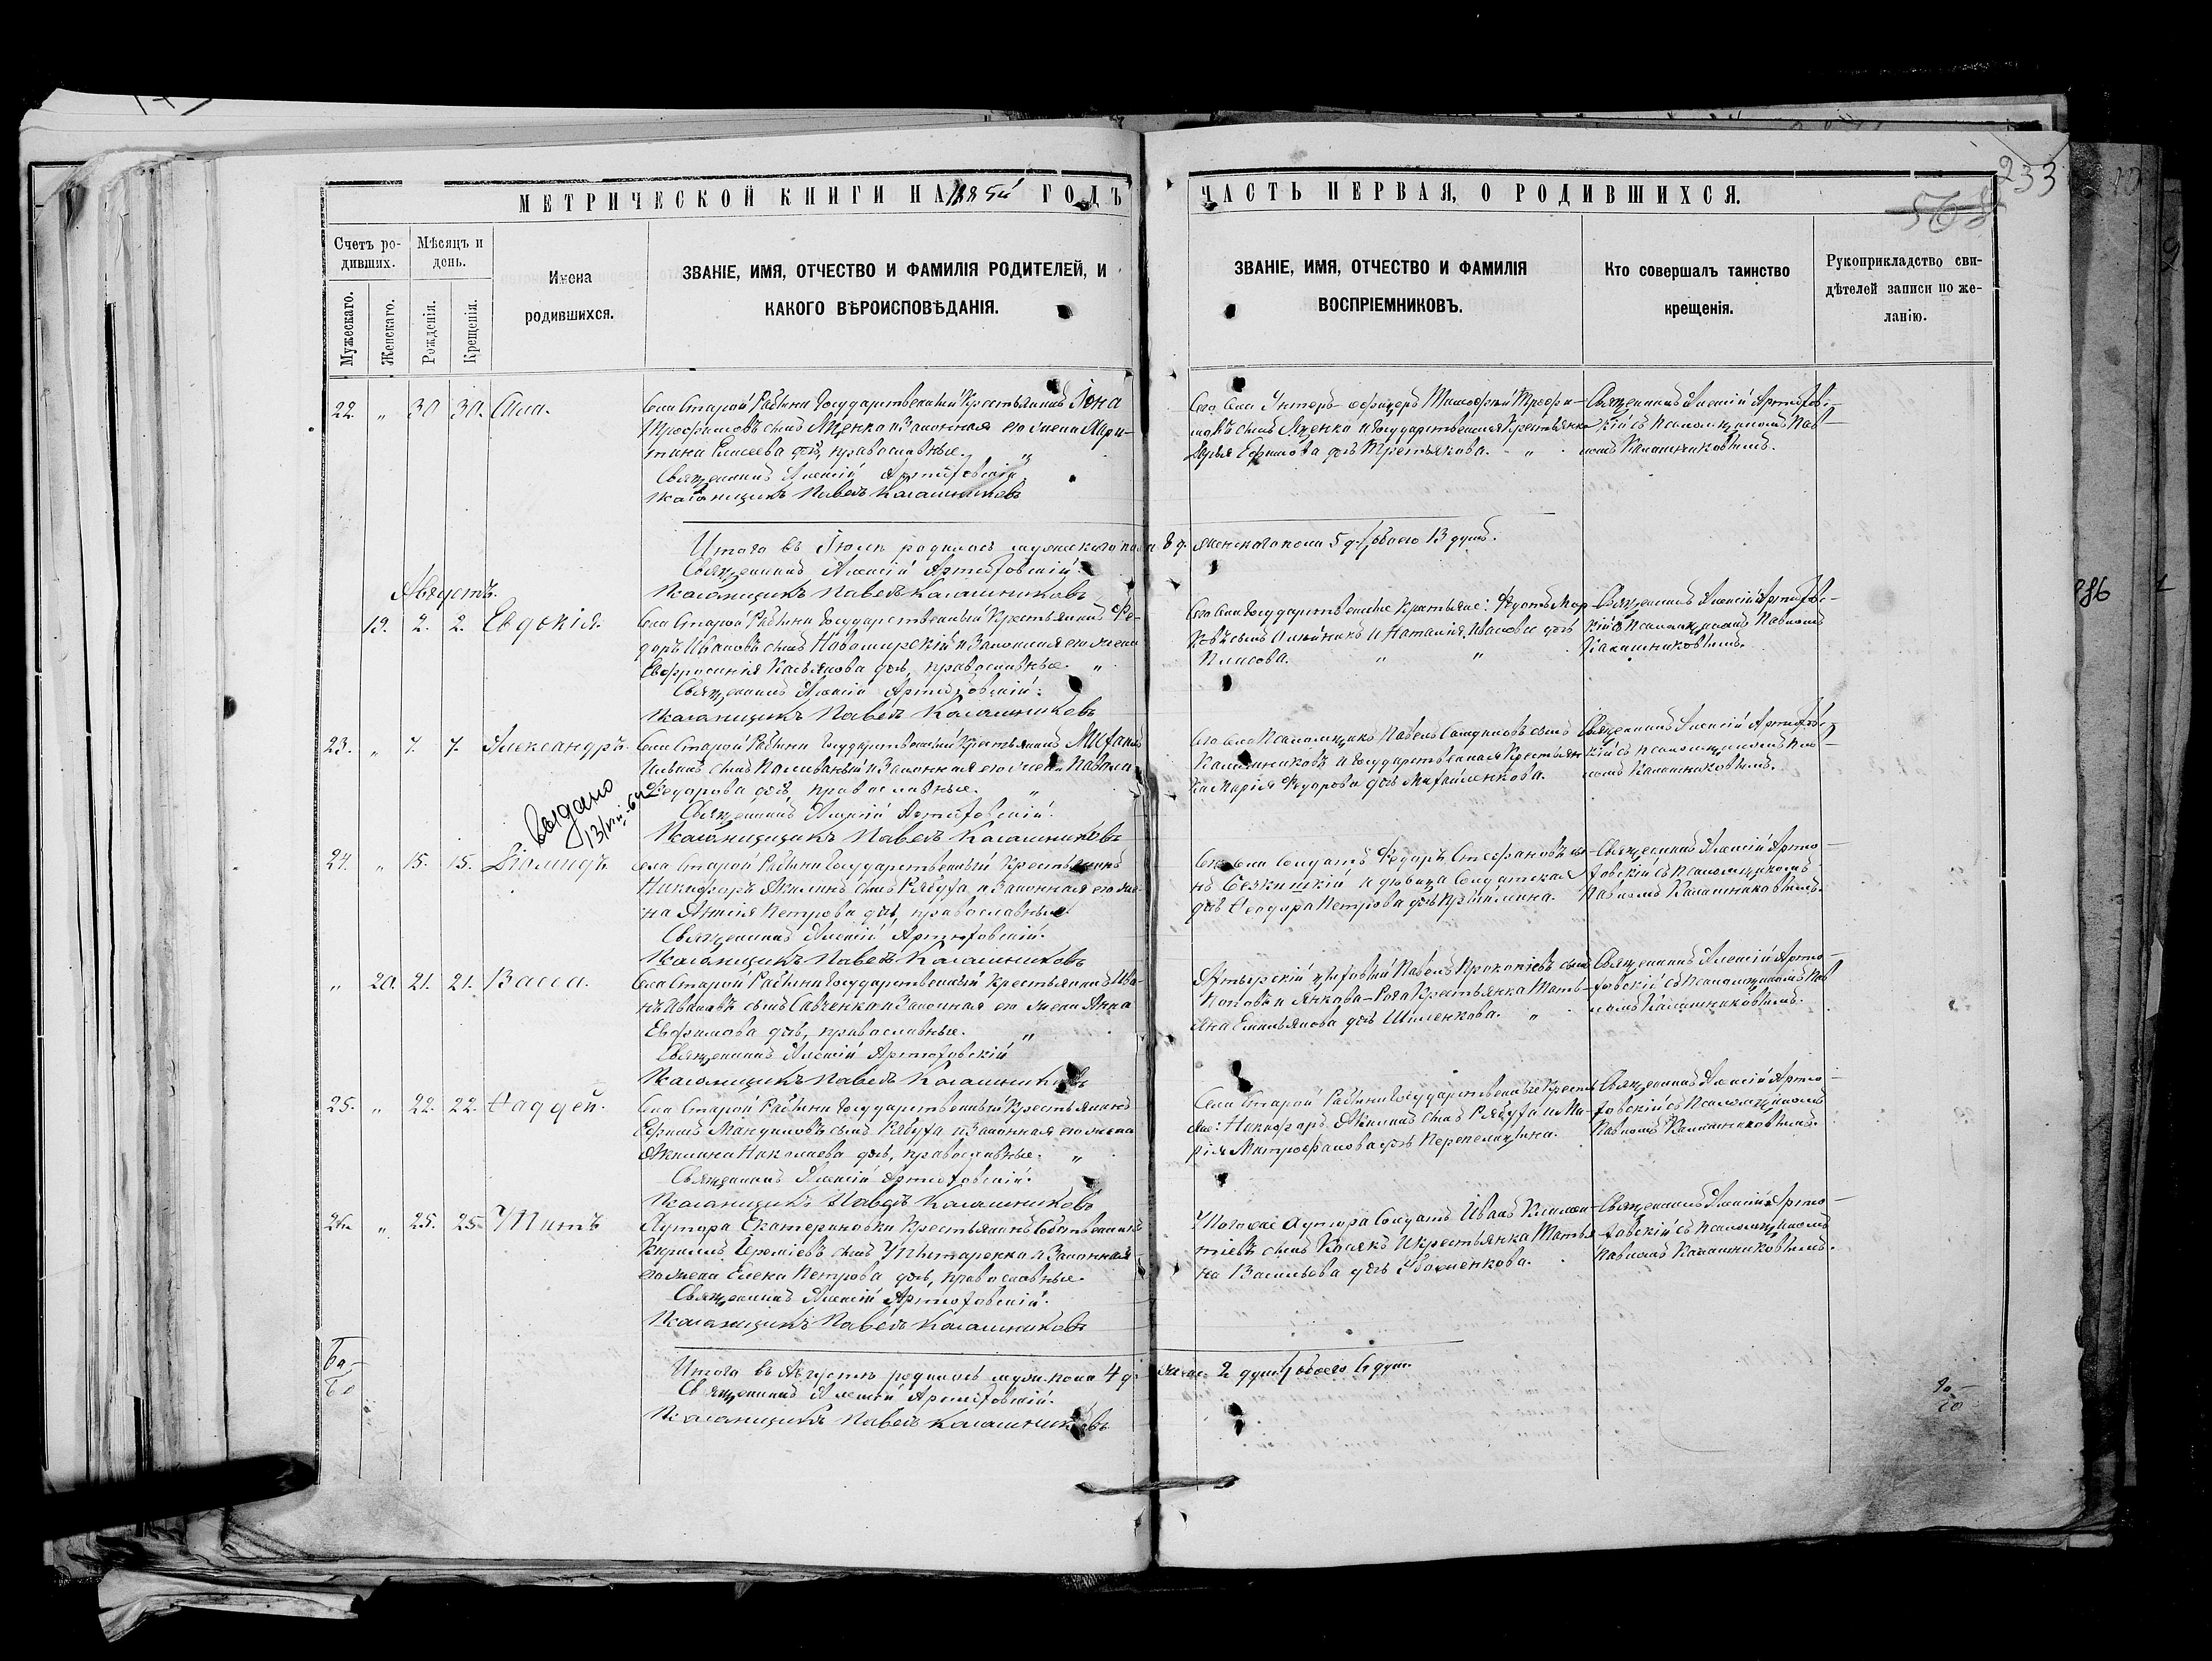 233
568
МЕТРИЧЕСКОЙ КНИГИ НА 1885й ГОДЪ
ЧАСТЬ ПЕРВАЯ, О РОДИВШИХСЯ.
Счетъ ро-
дивших.
Мѣсяцъ и
день.
Мужескаго.
Женскаго.
Рожденія.
Крещенія.
Имена
родившихся.
ЗВАНІЕ, ИМЯ, ОТЧЕСТВО И ФАМИЛІЯ РОДИТЕЛЕЙ, И
КАКОГО ВѢРОИСПОВѢДАНІЯ.
ЗВАНІЕ, ИМЯ, ОТЧЕСТВО И ФАМИЛІЯ
ВОСПРІЕМНИКОВЪ.
Кто совершалъ таинство
крещенія.
Рукоприкладство сви-
дѣтелей записи по же-
ланію.
22. " 30 30. Сила.
Села Старой Рябины Государственный Крестьянинъ Іона
Трофимовъ сынъ Яценко и Законная его жена Мари-
Елисеева дочь, православные. "
Священникъ Алексій Артюховскій
Псаломщикъ Павелъ Калашниковъ
Сего Села Унтеръ-офицеръ Тимофей Трофи-
мовъ сынъ Яценко и Государственная Крестьянка
Дарья Ефимова дочь Третьякова. "
Священникъ Алексій Артюхов-
скій съ Псаломщикомъ Пав-
ломъ Калашниковымъ.
Итого въ Іюлѣ родилось мужескаго пола 8 д. женскаго пола 5 д. / обоего 13 душъ.
Священникъ Алексій Артюховскій.
Псаломщикъ Павелъ Калашниковъ
Августъ.
19. 2. 2. Евдокія.
Села Старой Рябины Государственный Крестьянинъ Фе-
доръ Ивановъ сынъ Новомирскій и Законная его жена
Евфросинія Касьянова дочь, православные. "
Священникъ Алексій Артюховскій.
Псаломщикъ Павелъ Калашниковъ
Сего Села Государственные Крестьяне: Федотъ Мар-
ковъ сынъ Олейникъ и Наталія Иванова дочь
Плисова. " "
Священникъ Алексій Артюхов-
скій съ Псаломщикомъ Павломъ
Калашниковымъ.
23. " 7. 7. Александръ.
Села Старой Рябины Государственный Крестьянинъ Михаилъ
Ильинъ сынъ Поливаный и Законная его жена Павла
Федорова дочь, православные. "
Священникъ Алексій Артюховскій.
Псаломщикъ Павелъ Калашниковъ
Сего Села Псаломщикъ Павелъ сынъ
Калашниковъ и Государственная Крестьян-
ка Марія Федорова дочь Михайленкова.
Священникъ Алексій Артюхов-
скій съ Псаломщикомъ Пав-
ломъ Калашниковымъ.
Выдано
13/VIII-64
24. " 15. 15. Діомидъ
Села Старой Рябины Государственный Крестьянинъ
Никифоръ Акилинъ сынъ Рябуха и Законная его же-
на Анисія Петрова дочь, православные.
Священникъ Алексій Артюховскій.
Псаломщикъ Павелъ Калашниковъ
Сего Села Солдатъ Федоръ Стефановъ сы-
нъ Безкишкій и девица Солдатская
дочь Феодора Петрова дочь
Священникъ Алексій Артю-
ховскій съ Псаломщикомъ
Павломъ Калашниковымъ.
" 20. 21. 21. Васса.
Села Старой Рябины Государственный Крестьянинъ Ива-
нъ Ивановъ сынъ Савченко и Законная его жена Анна
Ефимова дочь, православные. "
Священникъ Алексій Артюховскій
Псаломщикъ Павелъ Калашниковъ
Ахтырскій цеховый Павелъ Прокопіевъ сынъ
Поповъ и Янкова-Рога Крестьянка Тать-
яна Емельянова дочь Шиленкова. "
Священникъ Алексій Артю-
ховскій съ Псаломщикомъ Пав-
ломъ Калашниковымъ.
25. " 22. 22. Фаддей.
Села Старой Рябины Государственный Крестьянинъ
Ефимъ сынъ Рябуха и Законная его жена
Акилина Николаева дочь, православные. "
Священникъ Алексій Артюховскій.
Псаломщикъ Павелъ Калашниковъ
Села Старой Рябины Государственные Кресть-
яне: Никифоръ Акилинъ сынъ Рябуха и Ма-
рія Митрофанова дочь Перепелицина.
Священникъ Алексій Артю-
ховскій съ Псаломщикомъ
Павломъ Калашниковымъ.
26. " 25. 25. Титъ
Хутора Екатериновки Крестьянинъ Собственникъ
Кириллъ Іереміевъ сынъ и Законная
его жена Елена Петрова дочь, православные.
Священникъ Алексій Артюховскій.
Псаломщикъ Павелъ Калашниковъ
Того же Хутора Солдатъ Иванъ Климен-
тіевъ сынъ и Крестьянка Татья-
на Васильева дочь
Священникъ Алексій Артю-
ховскій съ Псаломщикомъ
Павломъ Калашниковымъ.
Итого въ Августѣ родилось муж. пола 4 д. жен. 2 души / обоего 6 душ.
Священникъ Алексій Артюховскій.
Псаломщикъ Павелъ Калашниковъ